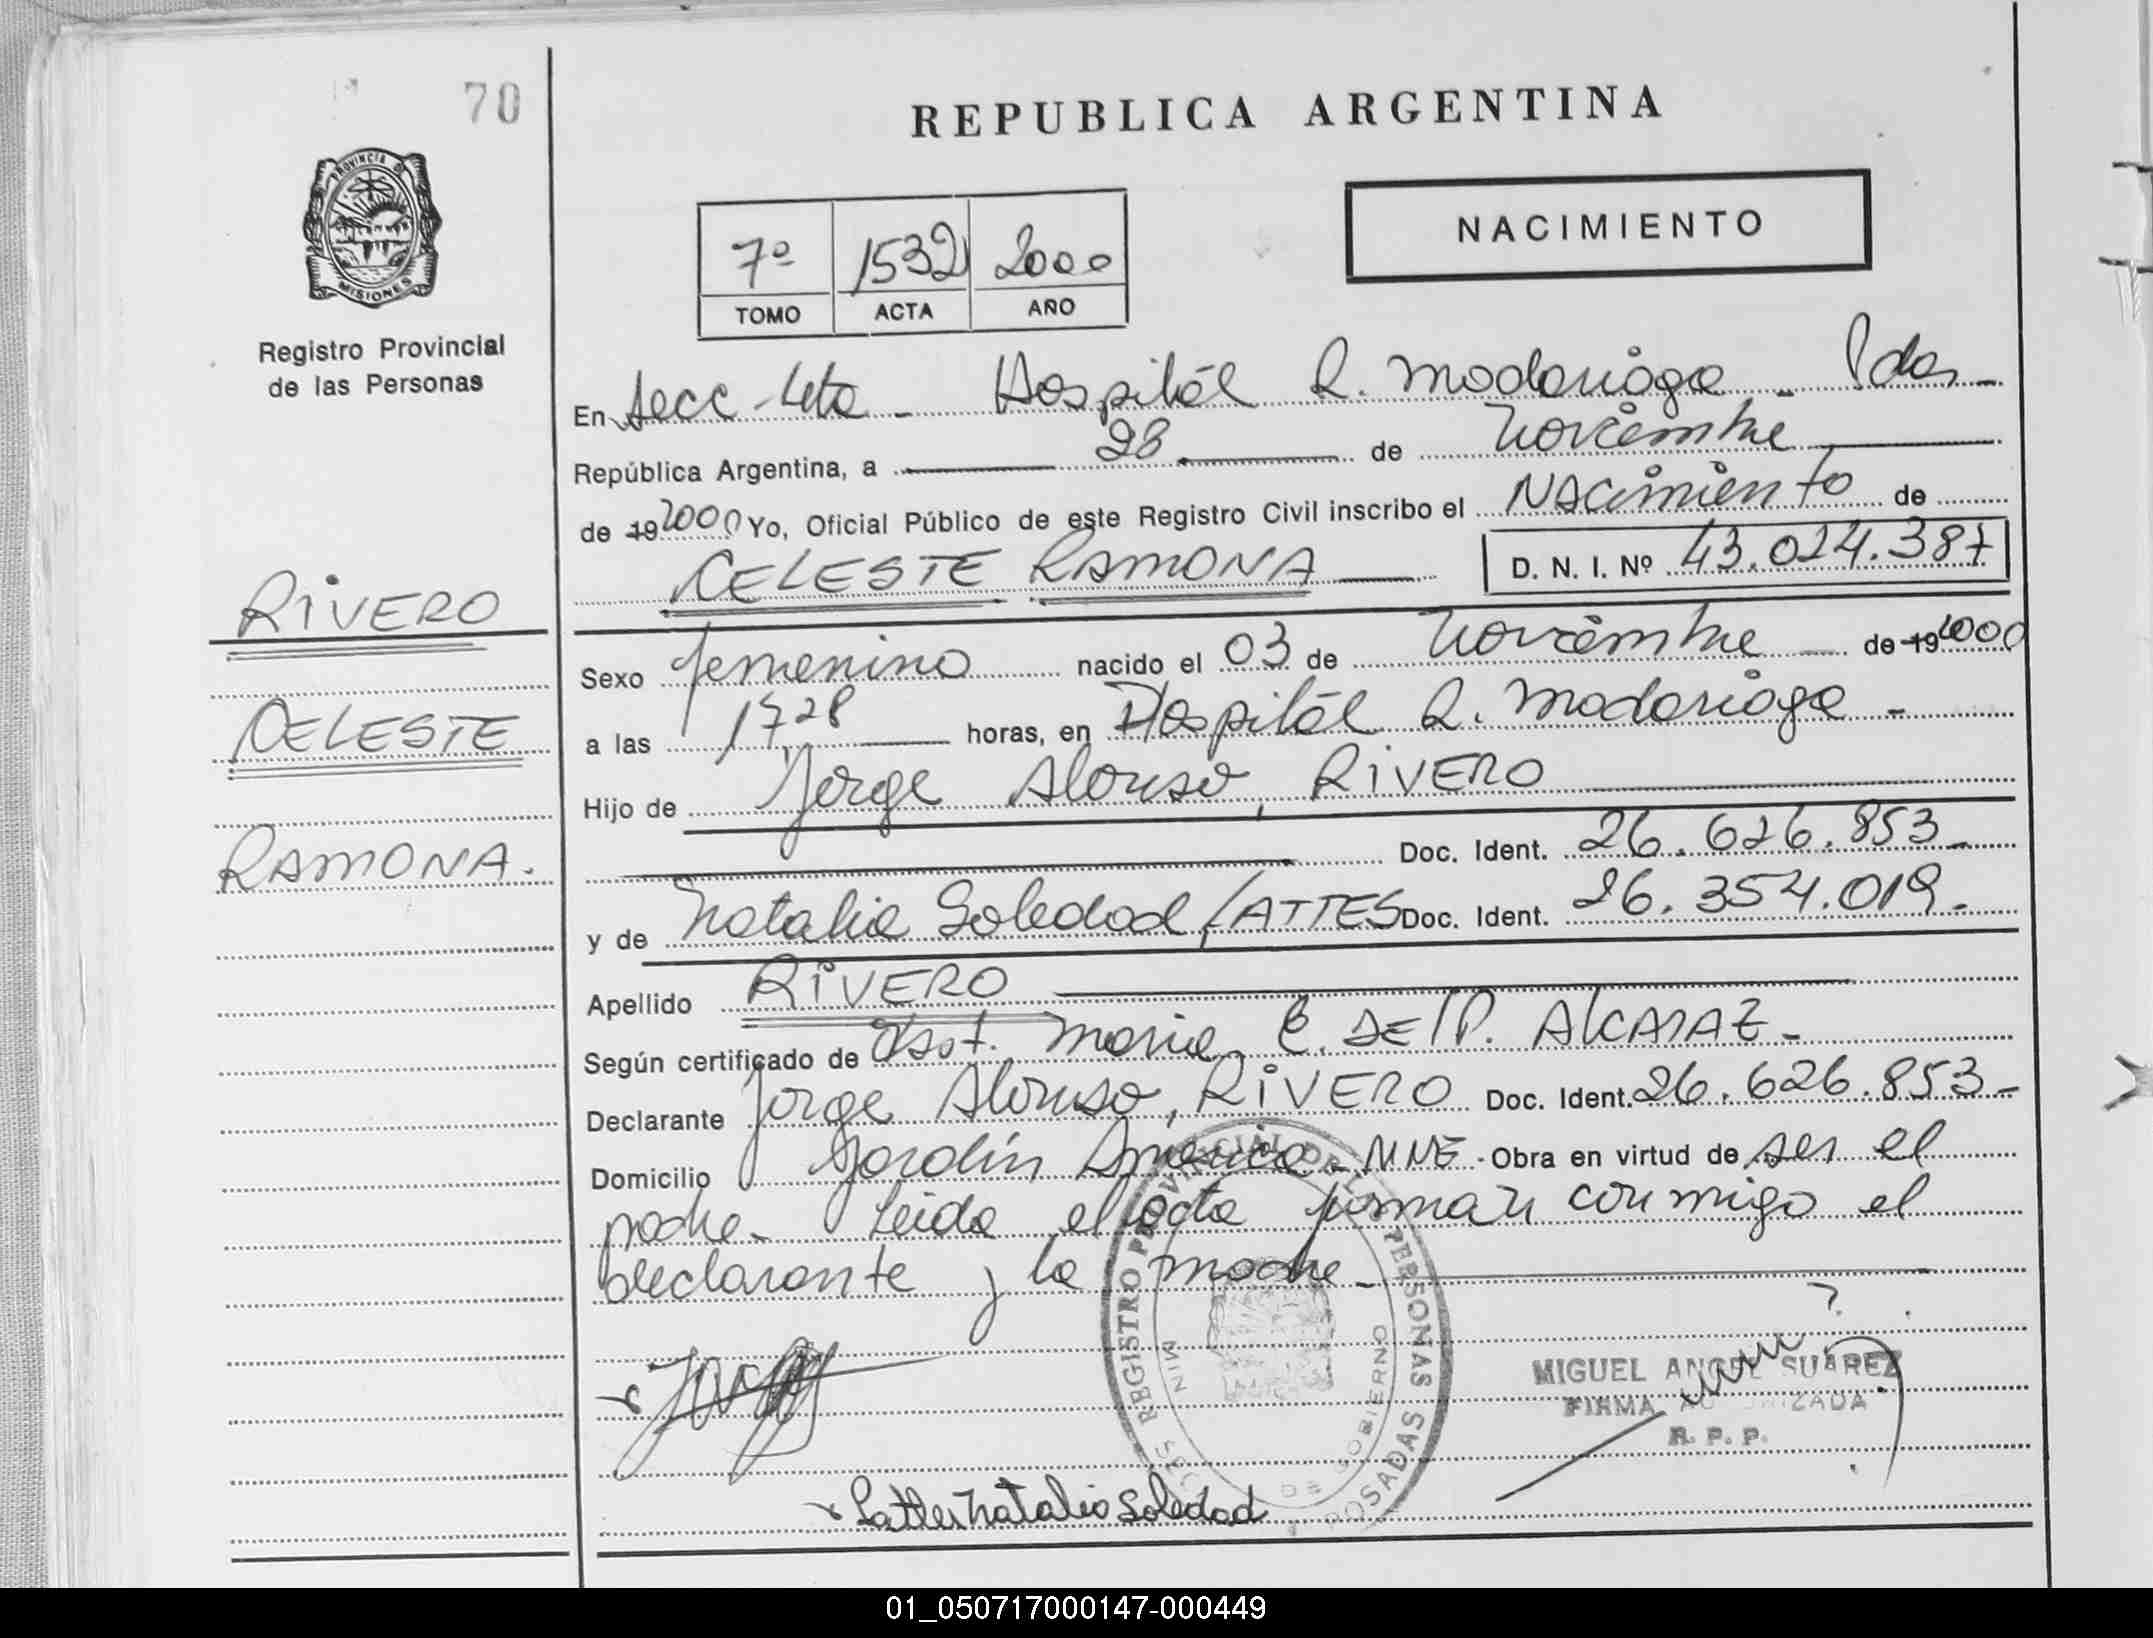 70
REPUBLICA ARGENTINA
PROVINCIA DE
MISIONES
Registro Provincial
de las Personas
7º 1532 2000
TOMO ACTA AÑO
NACIMIENTO
En Secc. 4ta - Hospital R. Madariaga - Pdas -
República Argentina, a 28 de Noviembre
de 19 2000 Yo, Oficial Público de este Registro Civil inscribo el Nacimiento de
CELESTE RAMONA D. N. I. Nº 43.024.387
RIVERO
CELESTE
RAMONA.
Sexo femenino nacido el 03 de Noviembre de 19 2000
a las 17,28 horas, en Hospital R. Madariaga -
Hijo de Jorge Alonso, RIVERO
Doc. Ident. 26.626.853-
y de Natalia Soledad, LATTES Doc. Ident. 26.354.019.-
Apellido RIVERO
Según certificado de Obst. Maria E. DE P. ALCARAZ-
Declarante Jorge Alonso, RIVERO Doc. Ident. 26.626.853-
Domicilio Jardín América - MNE - Obra en virtud de ser el
padre - Leida el acta firman conmigo el
declarante y la madre -
REGISTRO PROVINCIAL DE LAS PERSONAS
MIN. DE GOBIERNO
POSADAS
MIGUEL ANGEL SUAREZ
FIRMA AUTORIZADA
R. P. P.
Lattes Natalia Soledad
01_050717000147-000449